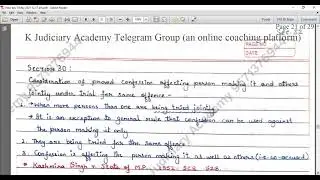 Page 21 of 291
K Judiciary Academy Telegram Group (an online coaching platform)
PAGE NO
DATE
Section 30:
Consideration of proved confession affecting person making it and others
jointly under trial for same offence -
When more persons than one are being tried jointly
It is an exception to general rule that confession can be used against
the person making it only
2. They are being tried for the same offence
3. Confession is affecting the person making it as well as others (i.e. co-accused)
Kashmira Singh v. State of M.P. 1952 SCR 526.